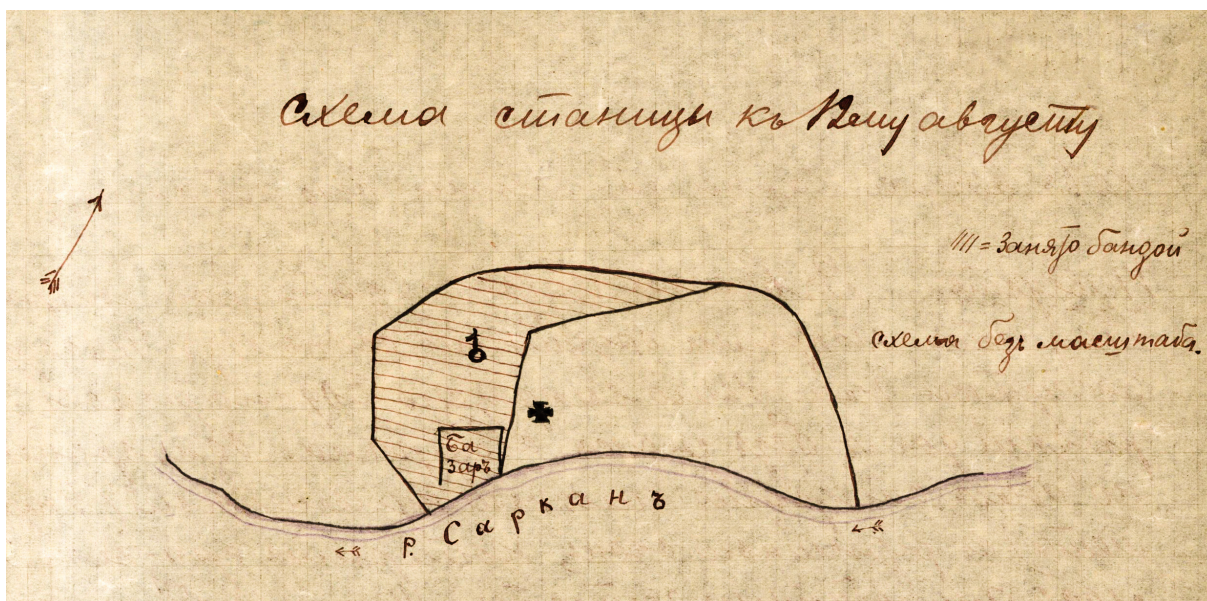 Схема станицы къ 12ему августу
//// = Занято бандой
схема безъ масштаба.
Ба
заръ
р. Сарканъ